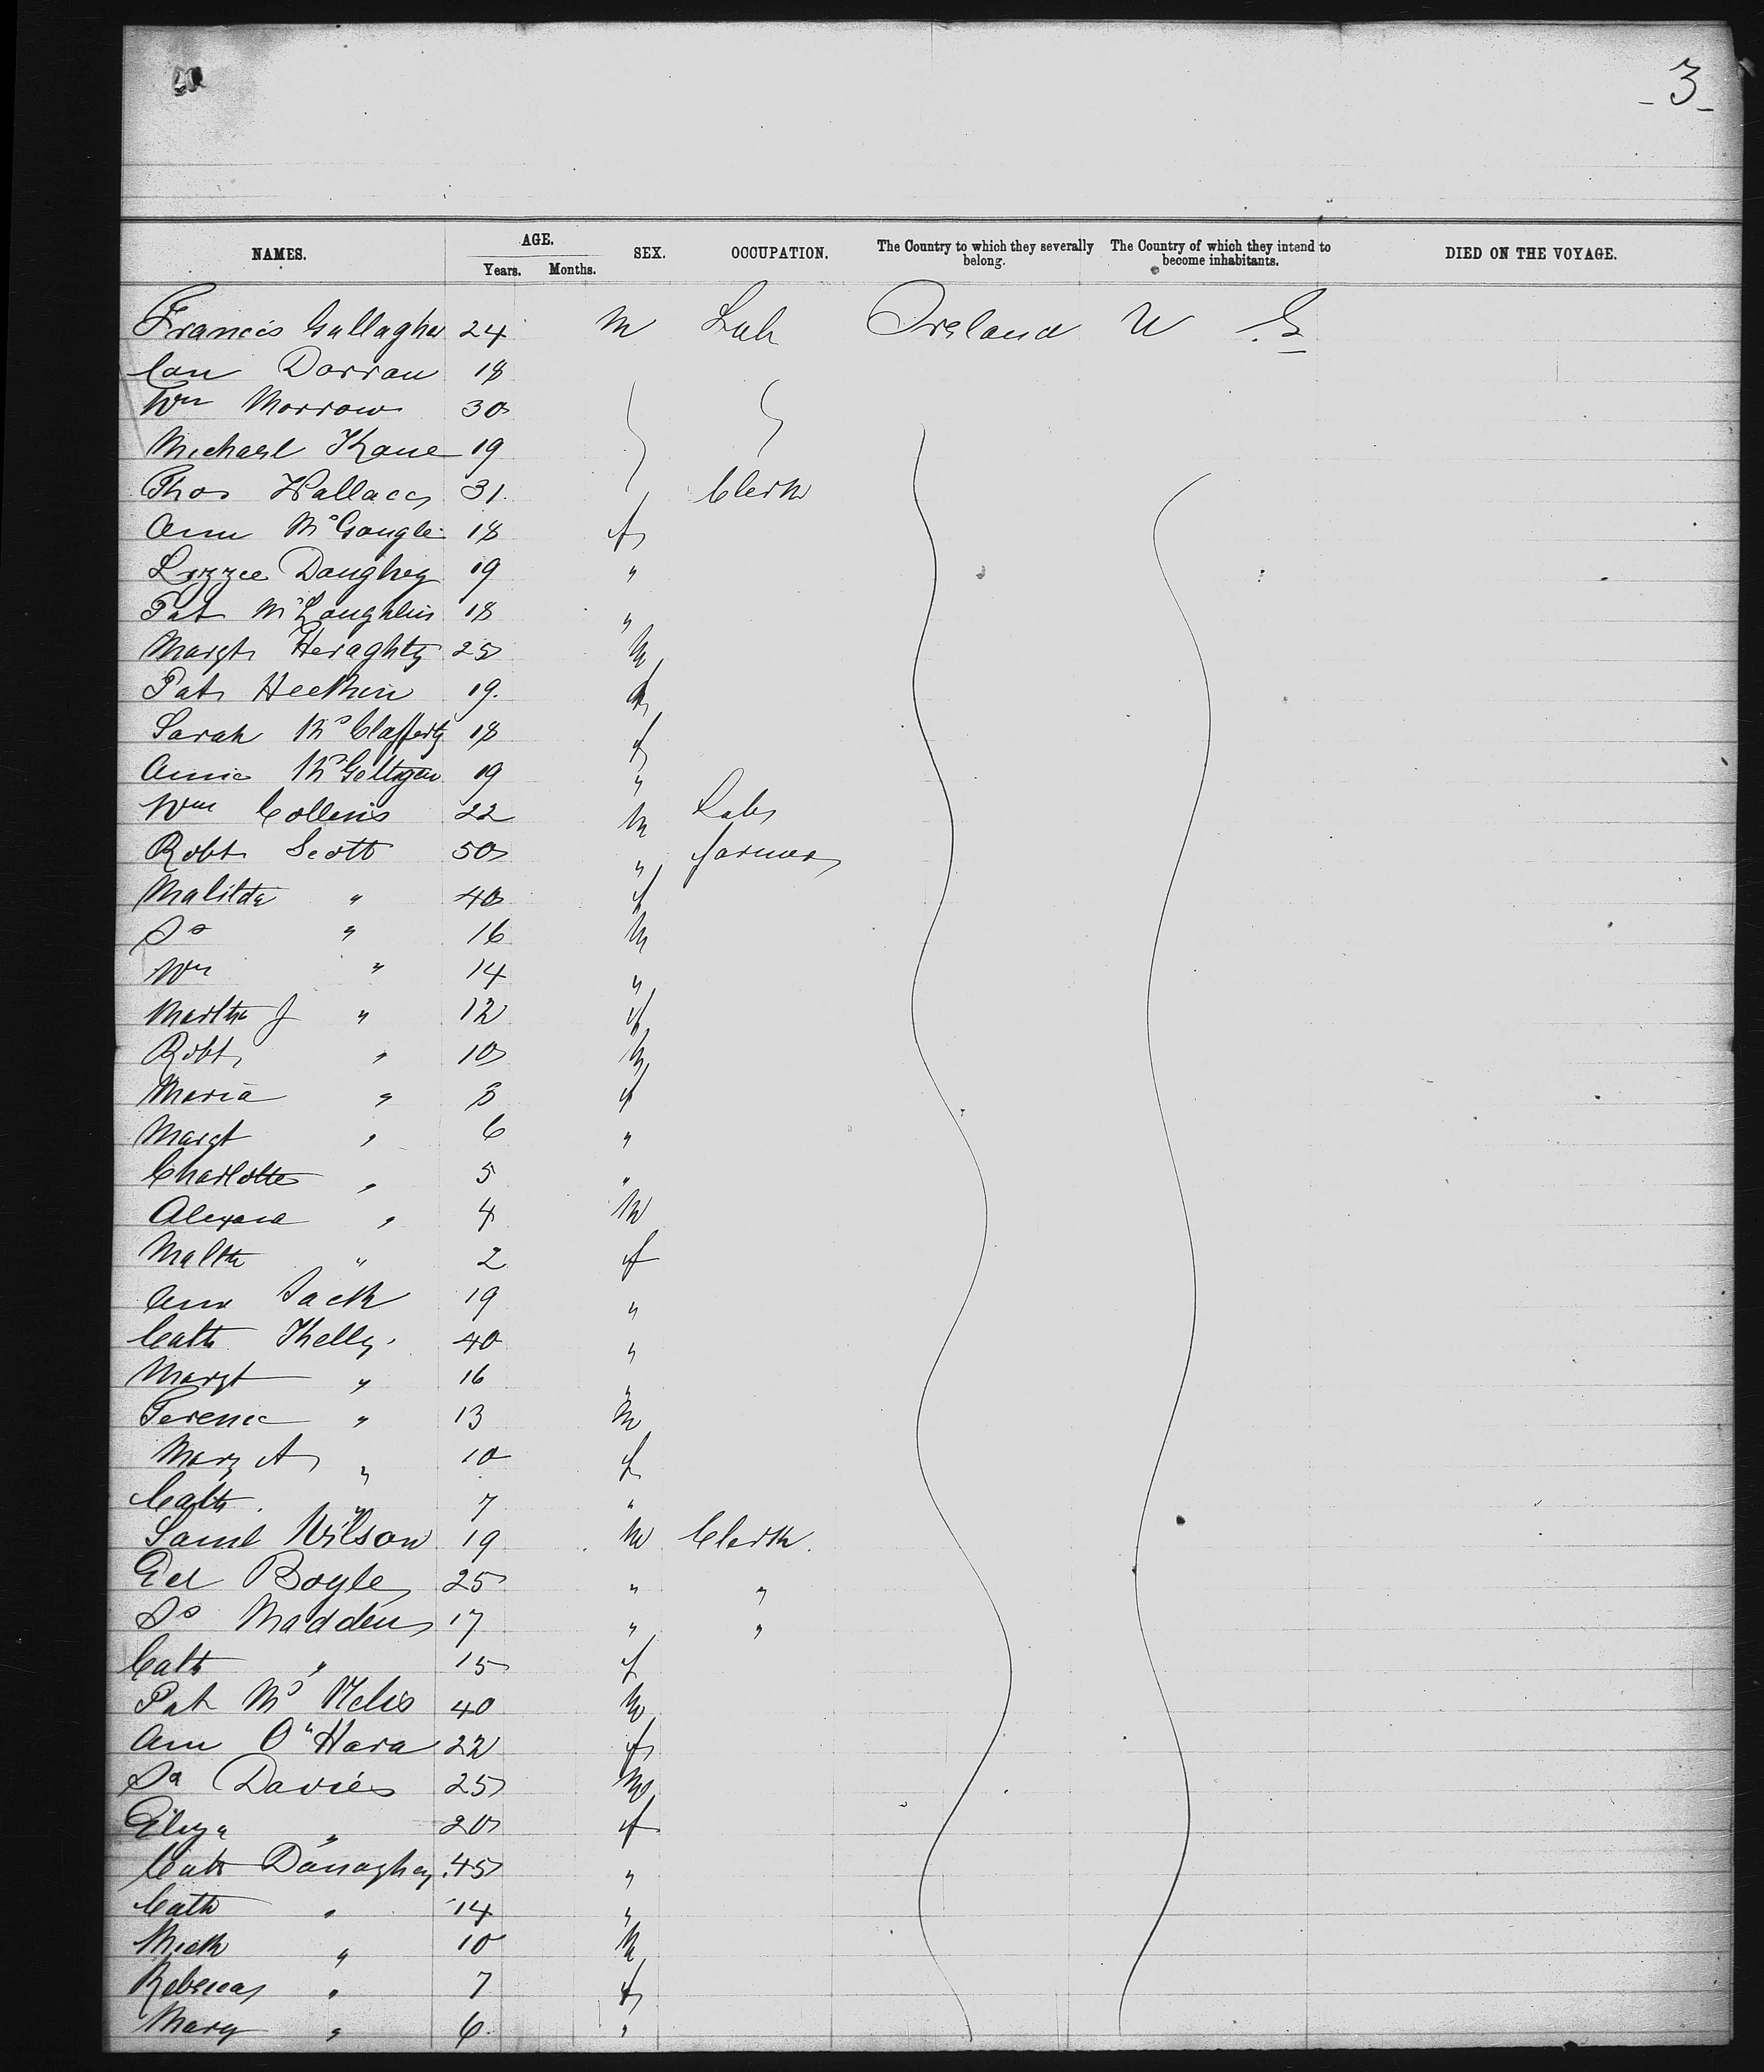 - 3 -
NAMES. AGE. SEX. OCCUPATION. The Country to which they severally belong. The Country of which they intend to become inhabitants. DIED ON THE VOYAGE.
Years. Months.
Francis Gallagher 24 M Lab Ireland U S
Con Dorran 18
Wm Morrow 30
Michael Kane 19
Thos Wallace 31 Clerk
Ann McGongle 18 f
Lizzie Doughey 19 "
Pat McLoughlin 18 "
Margt Heraghty 25 M
Pat Heekin 19
Sarah McClafferty 18 f
Annie McGettigan 19 "
Wm Collins 22 M Lab
Robt Scott 50 " farmer
Matilda " 40 f
Js " 16 M
Wm " 14 "
Martha J " 12 f
Robt " 10 M
Maria " 8 f
Margt " 6 "
Charlotte " 5 "
" 4 M
" 2 f
Ann Jack 19 "
Cath Kelly 40 "
Margt " 16 "
Terence " 13 M
Mary A " 10 f
Cath " 7 "
Saml Wilson 19 M Clerk
Ed Boyle 25 " "
Js Madden 17 " "
Cath " 15 f
Pat Mc 40 M
Ann O"Hara 22 f
Davies 25 M
Eliza " 20 f
Cath Donaghey 45 "
Cath " 14 "
Mich " 10 M
Rebecca " 7 f
Mary " 6 "